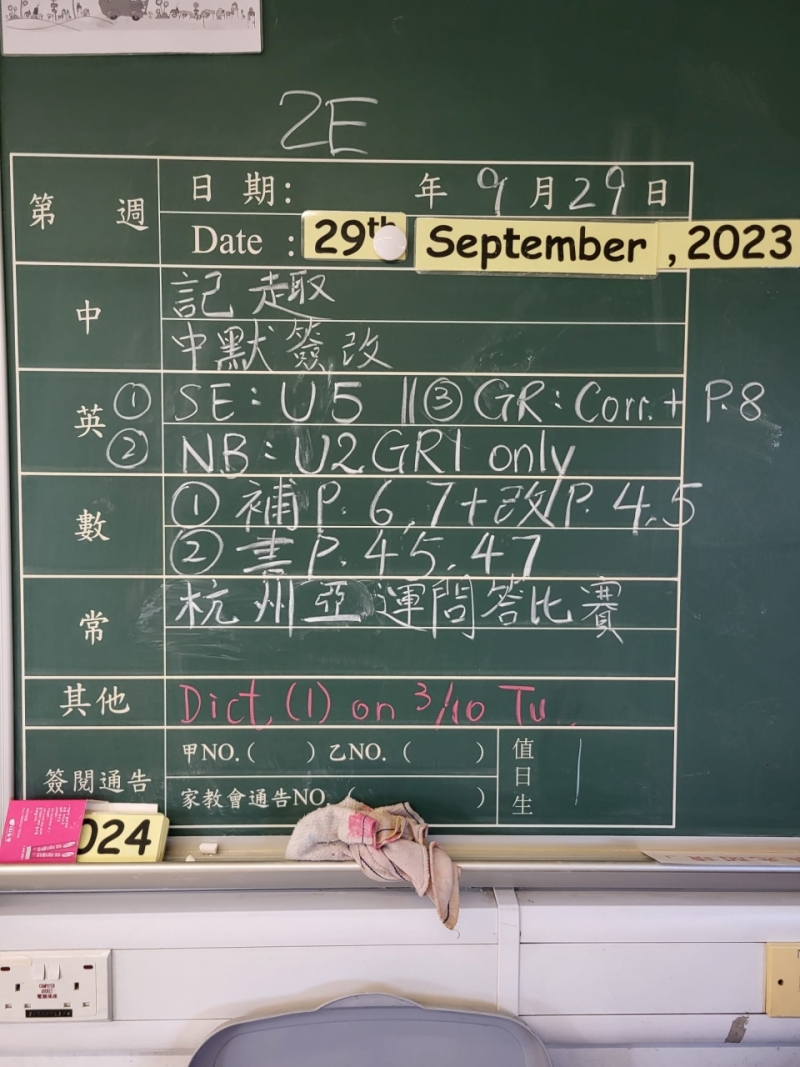 2E
第 週
日 期: 年 9 月 29 日
Date : 29th September , 2023
中
記 趣取
中默簽改
英
① SE: U5 || ③ GR: Corr. + P.8
② NB: U2 GR1 only
數
① 補 P. 6, 7 + 改 P. 4, 5
② 書 P. 45, 47
常
杭州亞運問答比賽
其他
Dict. (1) on 3/10 Tu
簽閱通告
甲NO. ( ) 乙NO. ( )
家教會通告NO. ( )
值日生 1
024
COMPUTER
電腦插座